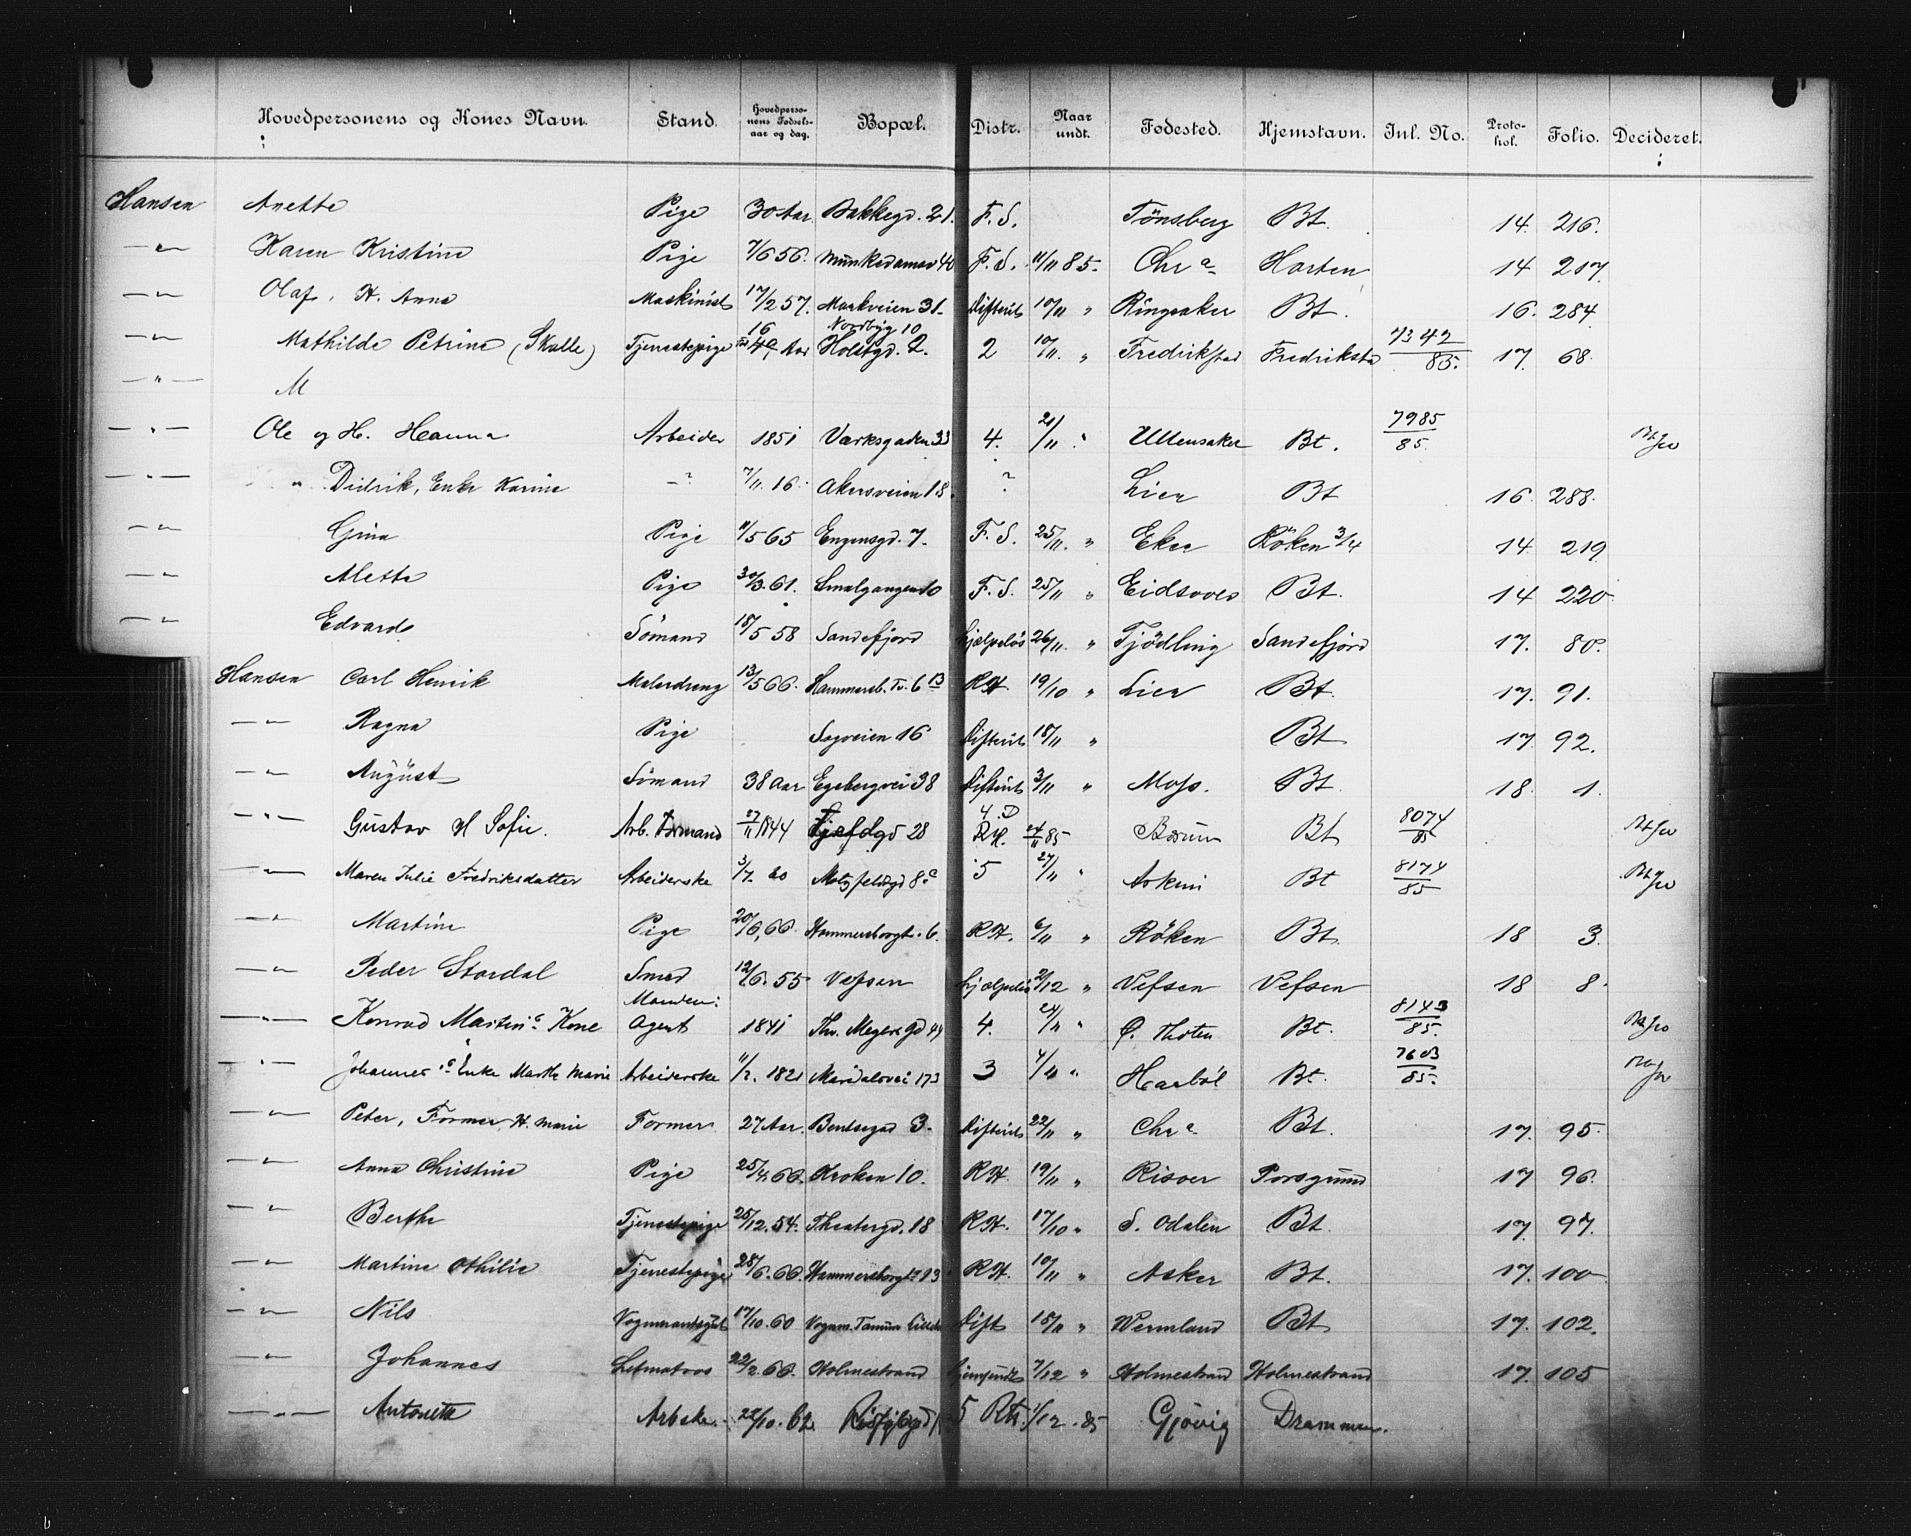 Hovedpersonens og Kones Navn. Stand. Hovedperso-nens Fødsels-aar og dag. Bopæl. Distr. Naar undt. Fødested. Hjemstavn. Inl. No. Proto-kol. Folio. Decideret.
Hansen Anette Pige 30 Aar Bakkegd. 21. F. S. Tönsberg Bt. 14. 216.
—"— Karen Kristine Pige 7/6 56. Munkedamsv 40 F. S. 11/11 85. Chr a Horten 14 217
—"— Olaf. H. Anna Maskinist 17/2 57. Markveien 31. Difterit 10/11 " Ringsaker Bt. 16. 284
16 Nordbyg 10
—"— Mathilde Petrine (Skulle) Tjenestepige Aar Holstgd. 2. 2 10/11. " Fredrikstad Fredriksta 7342/85. 17. 68
—"— M
—"— Ole og H. Hanna Arbeider 1851 Værksgaden 33 4. 21/11 " Ullensaker Bt. 7985/85
—"— " Didrik, Enke Karine —"— 7/11. 16. Akersveien 18. ? Lier Bt 16. 288.
—"— Gina Pige 11/5 65 Engensgd. 7. F. S. 25/11. " Eker Röken 3/4 14. 219
—"— Alette Pige 30/3. 61. Smalgangen 10 F. S. 25/11 " Eidsvold Bt. 14 220
—"— Edvard Sömand 18/5 58 Sandefjord Hjælpelös 26/11. " Tjödling Sandefjord 17. 80.
Hansen Carl Henrik Malerdreng 13/5 66. Hammersb. Tv. 6 13 R.H. 19/10 " Lier Bt. 17. 91.
—"— Ragna Pige Sagveien 16 Difterit 18/11 " Bt 17. 92.
—"— August Sömand 38 Aar Egebergvei 38 Difterit 3/11 " Moss. Bt. 18. 1.
—"— Gustav H Sofie. Arb. Formand 27/11 1844 28 4. D R.H. 24/11 85 Bærum Bt 8074/85
—"— Maren Julie Fredriksdatter Arbeiderske 3/7. 20 Motzfeldtsgd 8 c 5 27/11 " Askim Bt 8174/85
—"— Martine Pige 20/6, 66. Hammersborgt. 6. R.H. 6/11 " Röken Bt. 18 3.
—"— Peder Stordal Smed 12/6. 55. Vefsen Hjælpelös 2/12 " Vefsen Vefsen 18 8.
Manden:
—"— Konrad Martin s Kone Agent 1841 Thv. Meyers gd 44 4. 24/11 " Ö. Thoten Bt. 8143/85.
—"— Johannes s Enke Marthe Marie Arbeiderske 11/2. 1821 Maridalsvei 173 3 4/11 " Bt. 7603/85.
—"— Peter, Former, H. Marie Former 27 Aar. Bentsegad 3. Difterit 22/11 " Chr a Bt. 17. 95.
—"— Anna Christine Pige 25/4. 66. Kroken 10. R.H. 19/11 " Risoer Porsgrund 17 96.
—"— Berthe Tjenestepige 25/12. 54. Theatergd. 18 R.H. 17/10 " S. Odalen Bt. 17. 97.
—"— Martine Othilie Tjenestepige 28/6. 66. Hammersborgt 13 R.H. 10/11 " Asker Bt. 17. 100
—"— Nils Vognmandsgut 17/10. 60 Vognm. Difti 18/11 " Wermland Bt 17. 102.
—"— Johannes Letmatros 22/2. 66. Holmestrand Hjemsendt 7/12 " Holmestrand Holmestrand 17. 105
—"— Antonette Arbske. 22/10. 62. 5 RH. 1/12. 85 Gjövig Drammen.